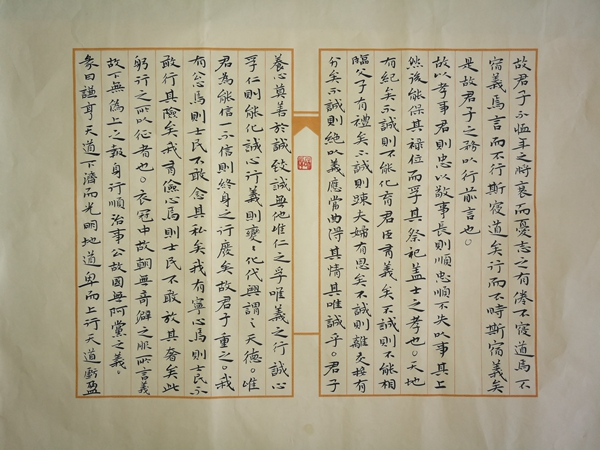 故君子不恤年之將衰而憂志之有倦不寢道焉不
宿義焉言而不行斯寢道矣行而不時斯宿義矣
是故君子之務以行前言也。
故以孝事君則忠以敬事長則順忠順不失以事其上
然後能保其祿位而守其祭祀蓋士之孝也。天地
有紀矣不誠則不能化育君臣有義矣不誠則不能相
臨父子有禮矣不誠則踈夫婦有恩矣不誠則離交接有
分矣不誠則絕以義應當曲得其情其唯誠乎。君子
養心莫善於誠致誠無他唯仁之守唯義之行誠心
守仁則能化誠心行義則變〻化代興謂〻天德。唯
君為能信一不信則終身之行廢矣故君子重之。我
有公心焉則士民不敢念其私矣我有寧心焉則士民不
敢行其險矣我有儉心焉則士民不敢放其奢矣此
躬行之所以征者也。衣冠中故朝無奇僻之服所言義
故下無偽上之報身行順治事公故國無阿黨之義。
彖曰謙亨天道下濟而光明地道卑而上行天道虧盈